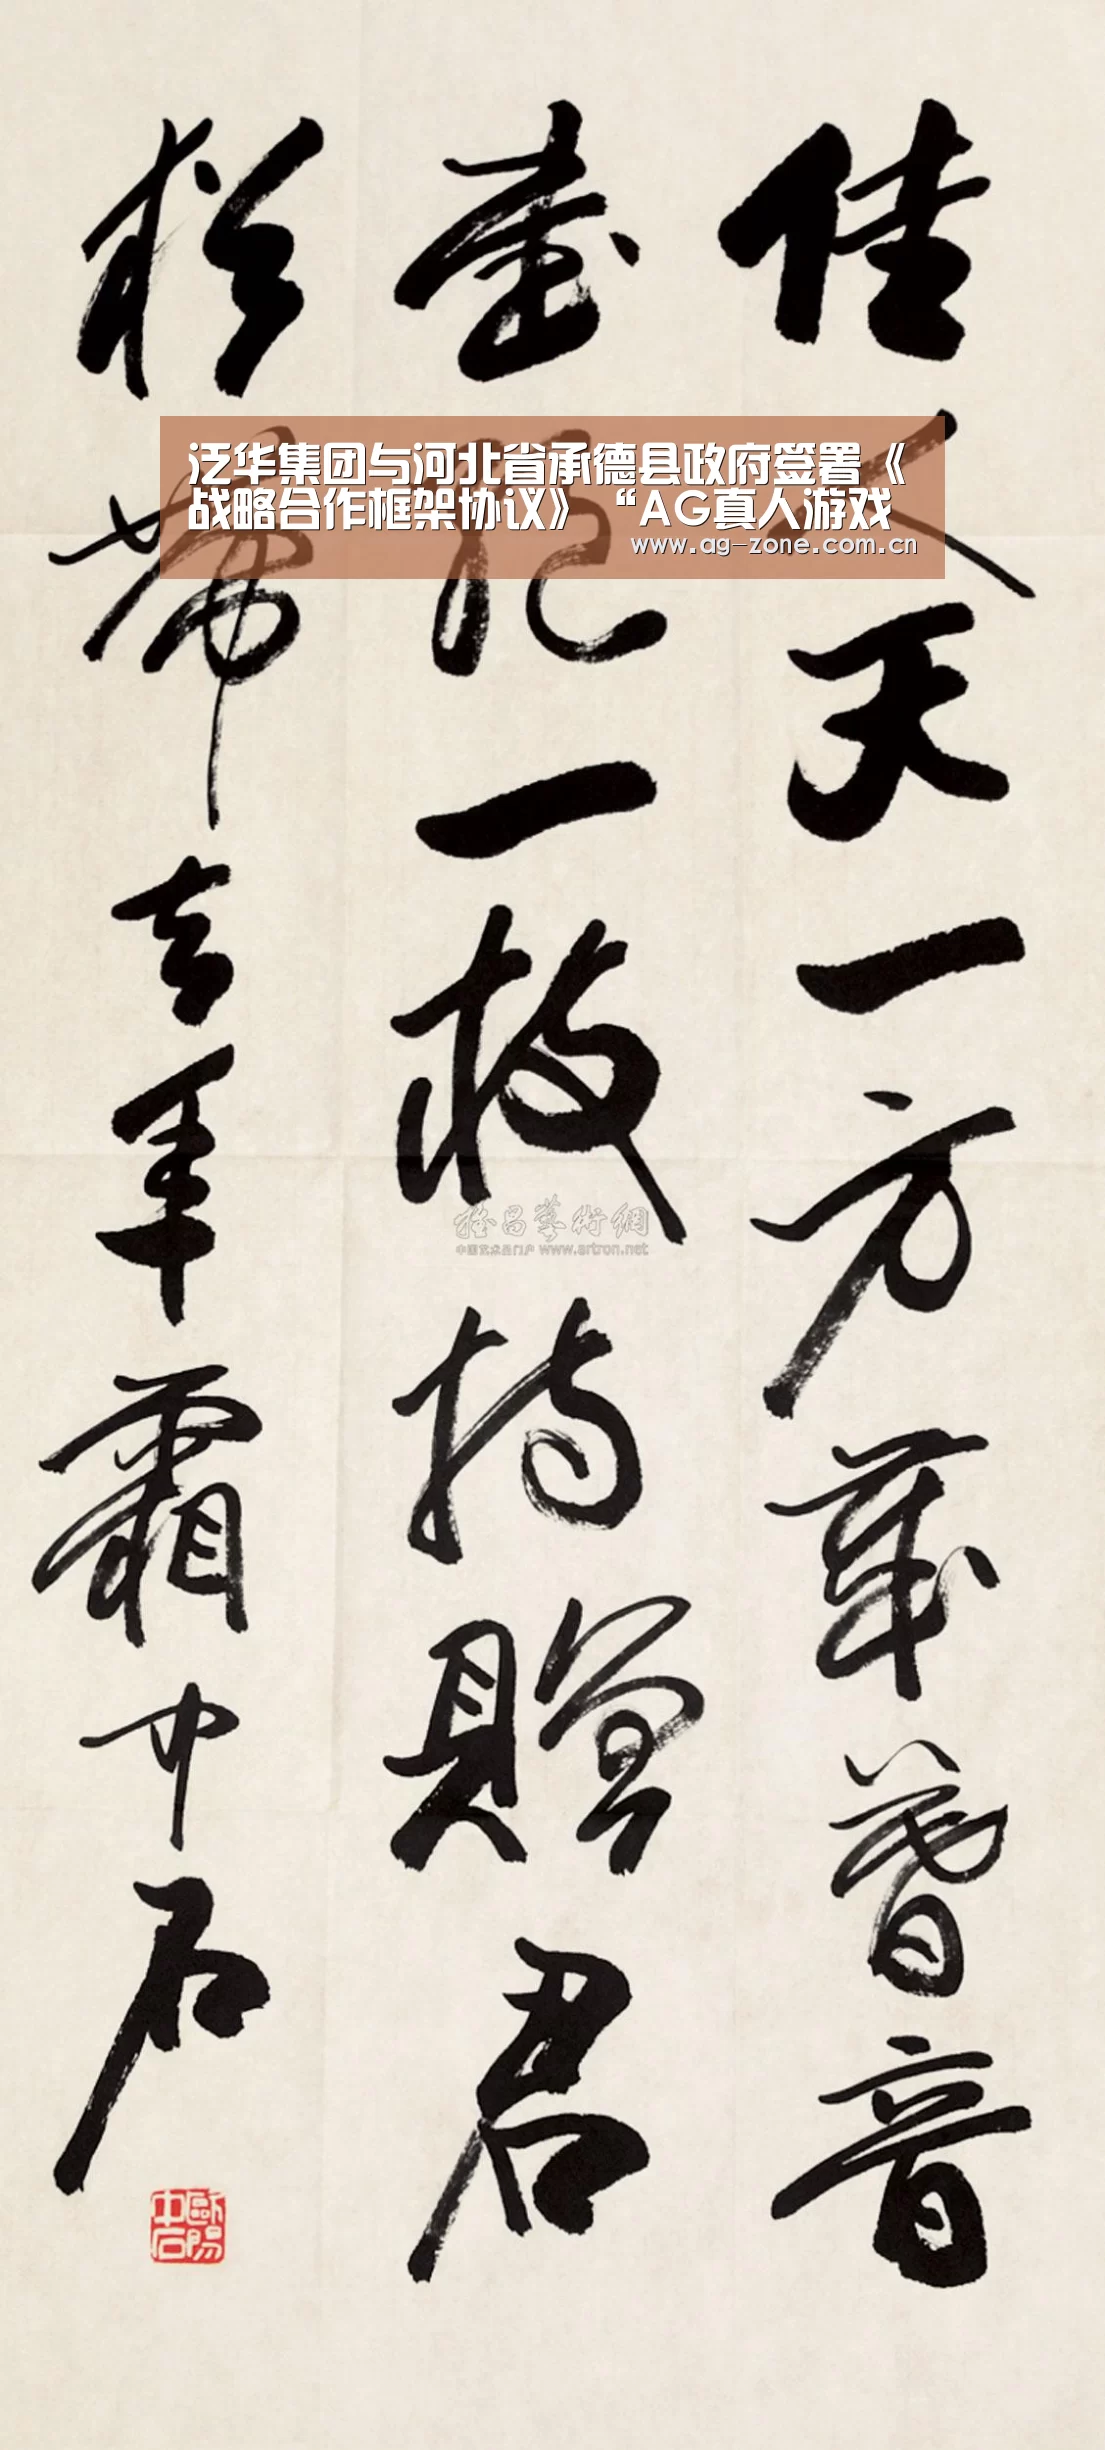 佳人天一方歲暮音
書絕一枝持贈君
帶去年霜中石
泛华集团与河北省承德县政府签署《
战略合作框架协议》“AG真人游戏
www.ag-zone.com.cn
雅昌藝術網
中国艺术品门户 www.artron.net
歐陽中石